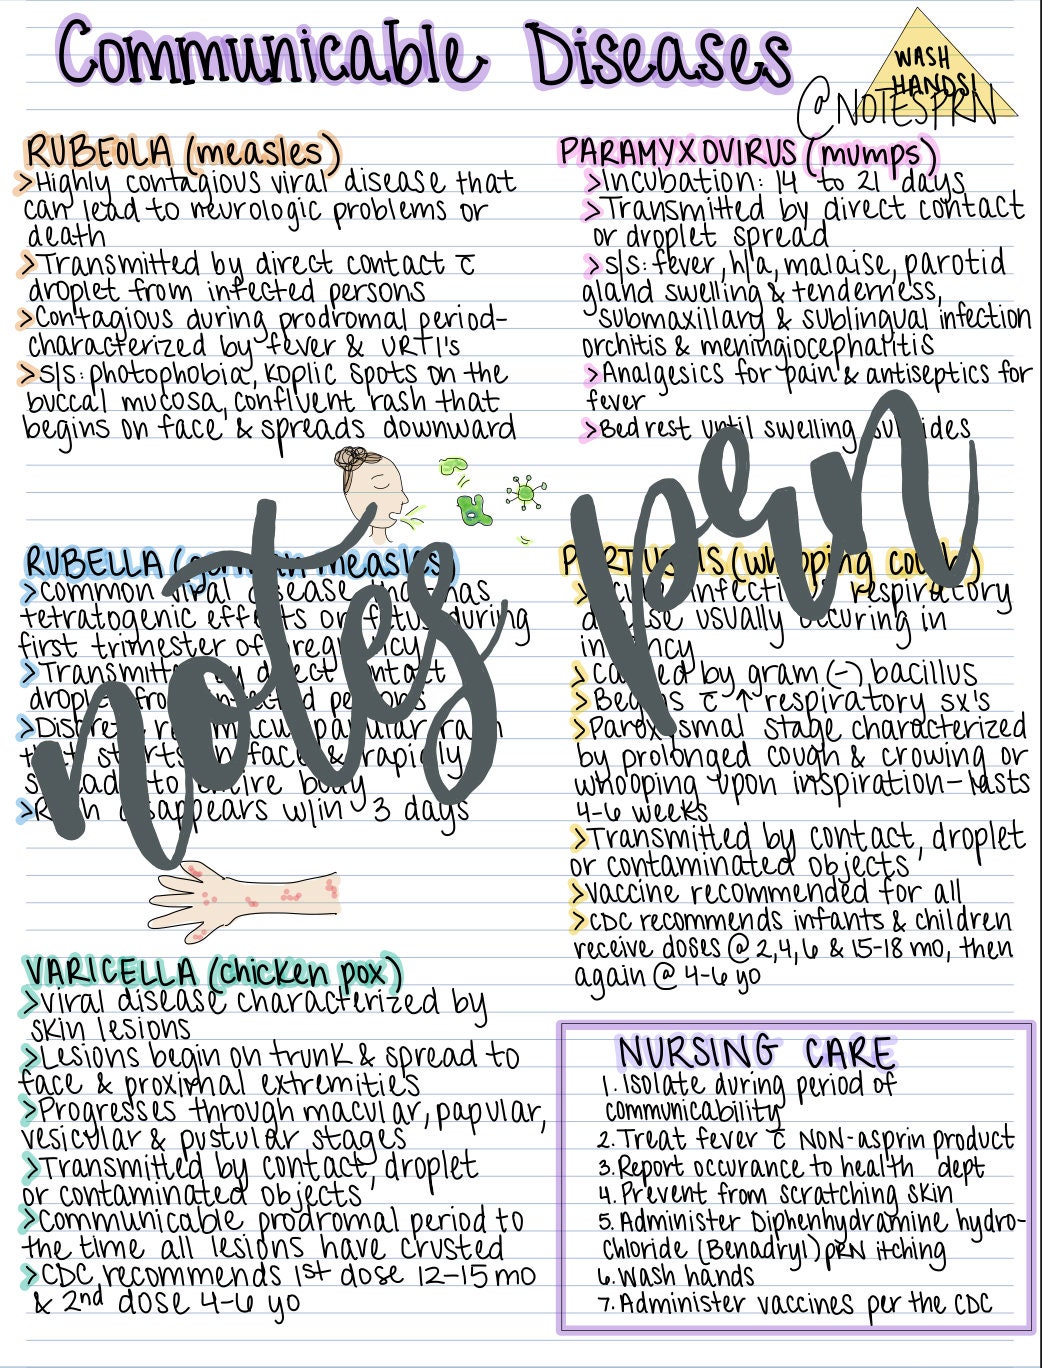 Communicable Diseases
WASH
HANDS!
@NOTESPRN
RUBEOLA (measles)
>Highly contagious viral disease that
can lead to neurologic problems or
death
>Transmitted by direct contact c̄
droplet from infected persons
>Contagious during prodromal period-
characterized by fever & URTI's
>s/s: photophobia, koplic spots on the
buccal mucosa, confluent rash that
begins on face & spreads downward
RUBELLA (german measles)
>common viral disease that has
tetratogenic effects on fetus during
first trimester of pregnancy
>Transmitted by direct contact
droplet from infected persons
>Discrete red maculopapular rash
that starts on face & rapidly
spreads to entire body
>Rash disappears w/in 3 days
VARICELLA (chicken pox)
>viral disease characterized by
skin lesions
>Lesions begin on trunk & spread to
face & proximal extremities
>Progresses through macular, papular,
vesicular & pustular stages
>Transmitted by contact, droplet
or contaminated objects
>communicable prodromal period to
the time all lesions have crusted
>CDC recommends 1st dose 12-15 mo
& 2nd dose 4-6 yo
PARAMYXOVIRUS (mumps)
>Incubation: 14 to 21 days
>Transmitted by direct contact
or droplet spread
>s/s: fever, h/a, malaise, parotid
gland swelling & tenderness,
submaxillary & sublingual infection
orchitis & meningiocepharitis
>Analgesics for pain & antiseptics for
fever
>Bed rest until swelling subsides
PERTUSSIS (whooping cough)
>Acute infectious respiratory
disease usually occuring in
infancy
>caused by gram (-) bacillus
>Begins c̄ ↑ respiratory sx's
>Paroxysmal stage characterized
by prolonged cough & crowing or
whooping upon inspiration-lasts
4-6 weeks
>Transmitted by contact, droplet
or contaminated objects
>vaccine recommended for all
>CDC recommends infants & children
receive doses @ 2,4,6 & 15-18 mo, then
again @ 4-6 yo
NURSING CARE
1. Isolate during period of
communicability
2. Treat fever c̄ NON-asprin product
3. Report occurance to health dept
4. Prevent from scratching skin
5. Administer Diphenhydramine hydro-
chloride (Benadryl) pRN itching
6. Wash hands
7. Administer vaccines per the CDC
notes prn